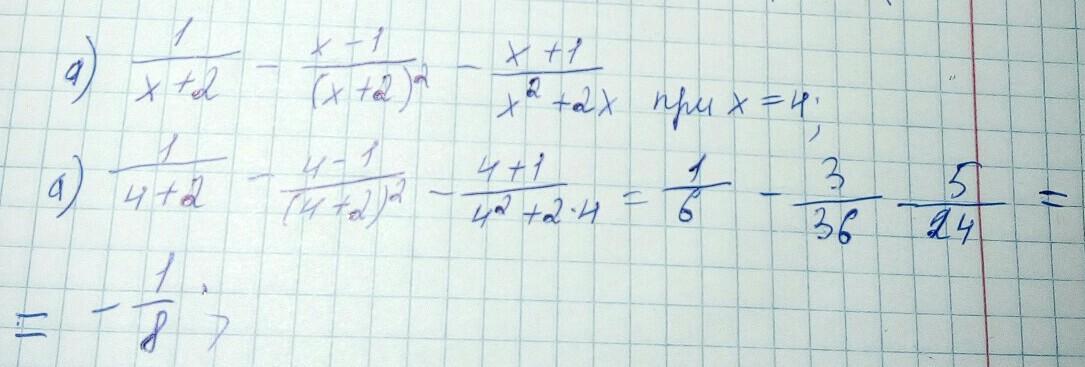 а) 1/(x+2) - (x-1)/(x+2)² - (x+1)/(x²+2x) при x=4;
а) 1/(4+2) - (4-1)/(4+2)² - (4+1)/(4²+2·4) = 1/6 - 3/36 - 5/24 =
= -1/8;